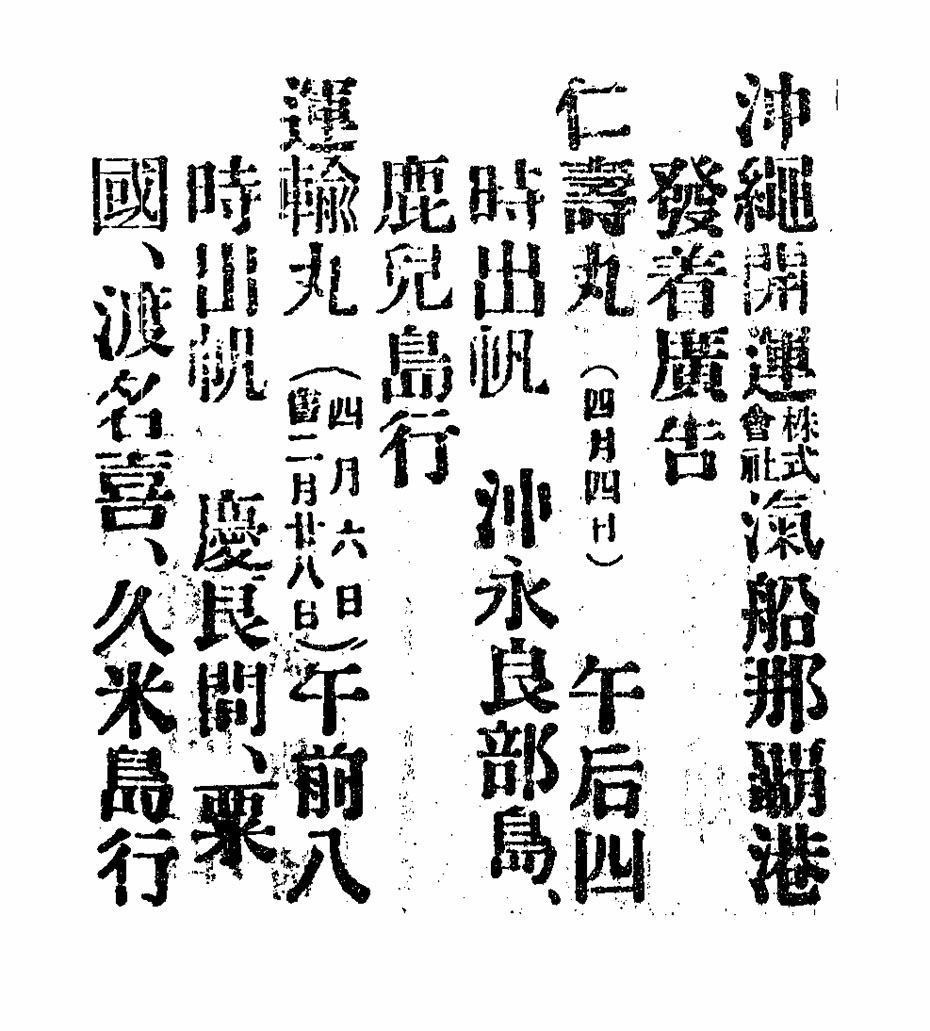 沖繩開運株式會社漁船那覇港
發着廣告
仁壽丸(四月四日)午后四
時出帆 沖永良部島、
鹿兒島行
運輸丸(四月六日舊二月廿八日)午前八
時出帆 慶良間、粟
國、渡名喜、久米島行